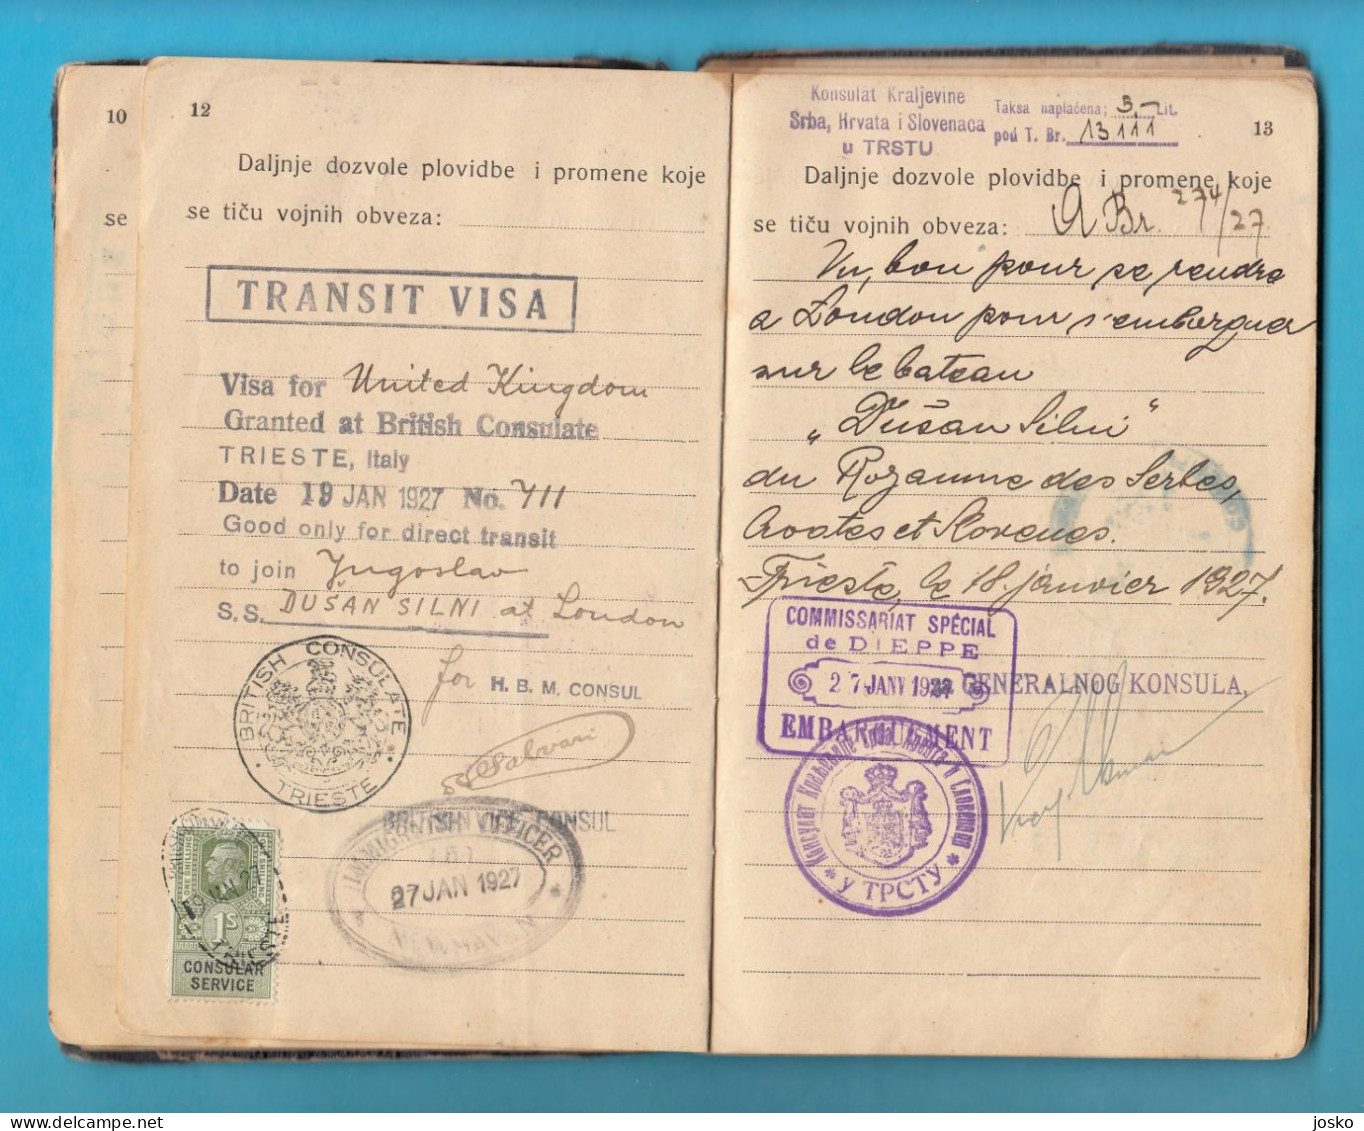 10
se
12
Daljnje dozvole plovidbe i promene koje
se tiču vojnih obveza:
TRANSIT VISA
Visa for United Kingdom
Granted at British Consulate
TRIESTE, Italy
Date 19 JAN 1927 No. 711
Good only for direct transit
to join Jugoslav
S.S. DUŠAN SILNI at London
for H. B. M. CONSUL
BRITISH CONSULATE
TRIESTE
BRITISH VICE CONSUL
IMMIGRATION OFFICER
27 JAN 1927
NEWHAVEN
ONE SHILLING
1S
CONSULAR
SERVICE
Konsulat Kraljevine
Srba, Hrvata i Slovenaca
u TRSTU
Taksa naplaćena; 3.- Lit.
pod T. Br. 13111
13
Daljnje dozvole plovidbe i promene koje
se tiču vojnih obveza: A Br. 274/27
Vu, bon pour se rendre
a London pour s'embarquer
sur le bateau
„Dušan Silni"
du Royaume des Serbes,
Croates et Slovenes.
Trieste, le 18. janvier 1927.
COMMISSARIAT SPÉCIAL
de DIEPPE
27 JANV
EMBARQUEMENT
GENERALNOG KONSULA,
Консулат Краљевине Срба, Хрвата и Словенаца
У ТРСТУ
josko